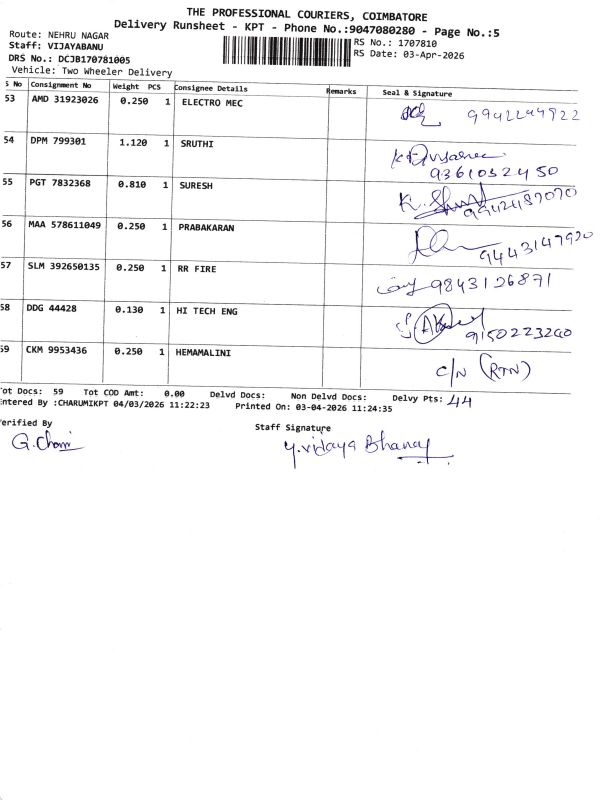 THE PROFESSIONAL COURIERS, COIMBATORE
Delivery Runsheet - KPT - Phone No.:9047080280 - Page No.:5
Route: NEHRU NAGAR
RS No.: 1707810
Staff: VIJAYABANU
RS Date: 03-Apr-2026
DRS No.: DCJB170781005
Vehicle: Two Wheeler Delivery
S No Consignment No Weight PCS Consignee Details Remarks Seal & Signature
53 AMD 31923026 0.250 1 ELECTRO MEC
54 DPM 799301 1.120 1 SRUTHI
9361032450
55 PGT 7832368 0.810 1 SURESH
56 MAA 578611049 0.250 1 PRABAKARAN
57 SLM 392650135 0.250 1 RR FIRE 9843126871
58 DDG 44428 0.130 1 HI TECH ENG
9150223240
59 CKM 9953436 0.250 1 HEMAMALINI
C/N (RTN)
Tot Docs: 59 Tot COD Amt: 0.00 Delvd Docs: Non Delvd Docs: Delvy Pts: 44
Entered By :CHARUMIKPT 04/03/2026 11:22:23 Printed On: 03-04-2026 11:24:35
Verified By Staff Signature
Y.vijaya Bhanu